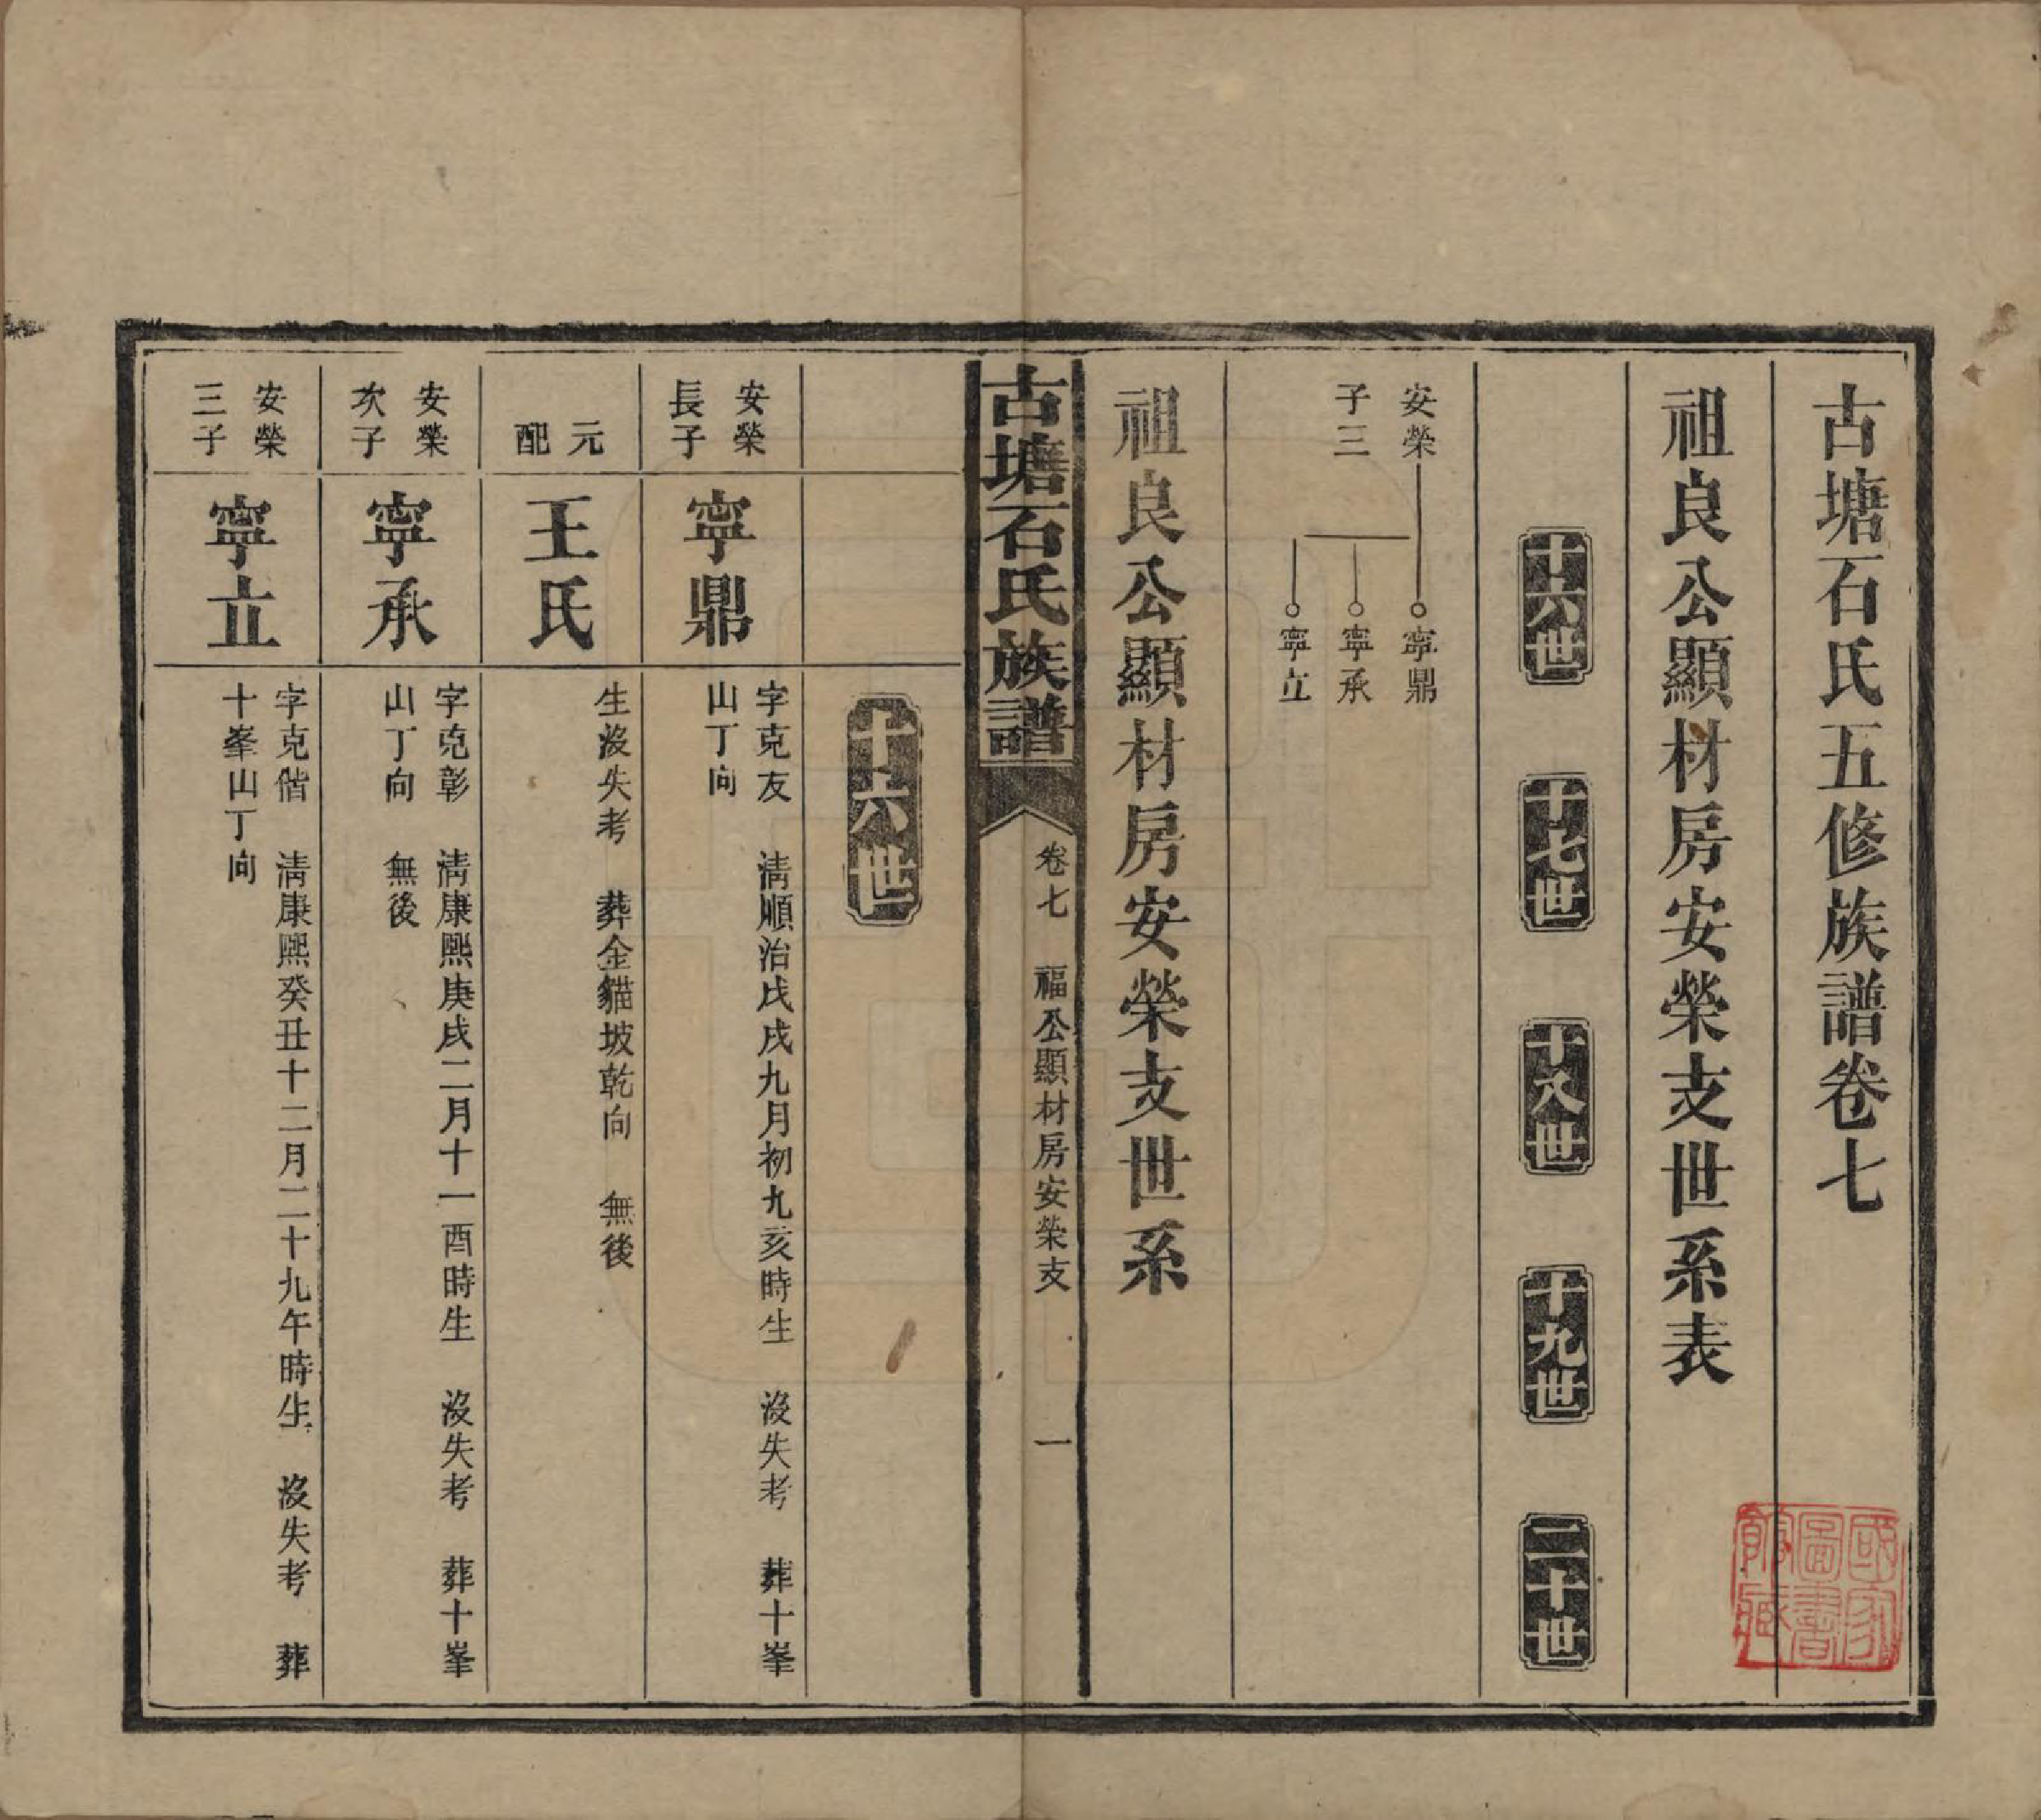 古塘石氏五修族譜卷七
國家
圖書
館藏
祖良公顯材房安榮支世系表
十六世
十七世
十八世
十九世
二十世
安榮
子三
寧鼎
寧承
寧立
祖良公顯材房安榮支世系
古塘石氏族譜
卷七 福公顯材房安榮支 一
十六世
安榮
長子
寧鼎
字克友 淸順治戊戌九月初九亥時生 沒失考 葬十峯
山丁向
元
配
王氏
生沒失考 葬金貓坡乾向 無後
安榮
次子
寧承
字克彰 淸康熙庚戌二月十一酉時生 沒失考 葬十峯
山丁向 無後
安榮
三子
寧立
字克偕 淸康熙癸丑十二月二十九午時生 沒失考 葬
十峯山丁向